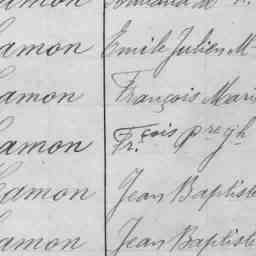 amon
amon Emile Julien M
amon François Mari
amon Fr.çois
amon Jean Baptiste
amon Jean Baptiste